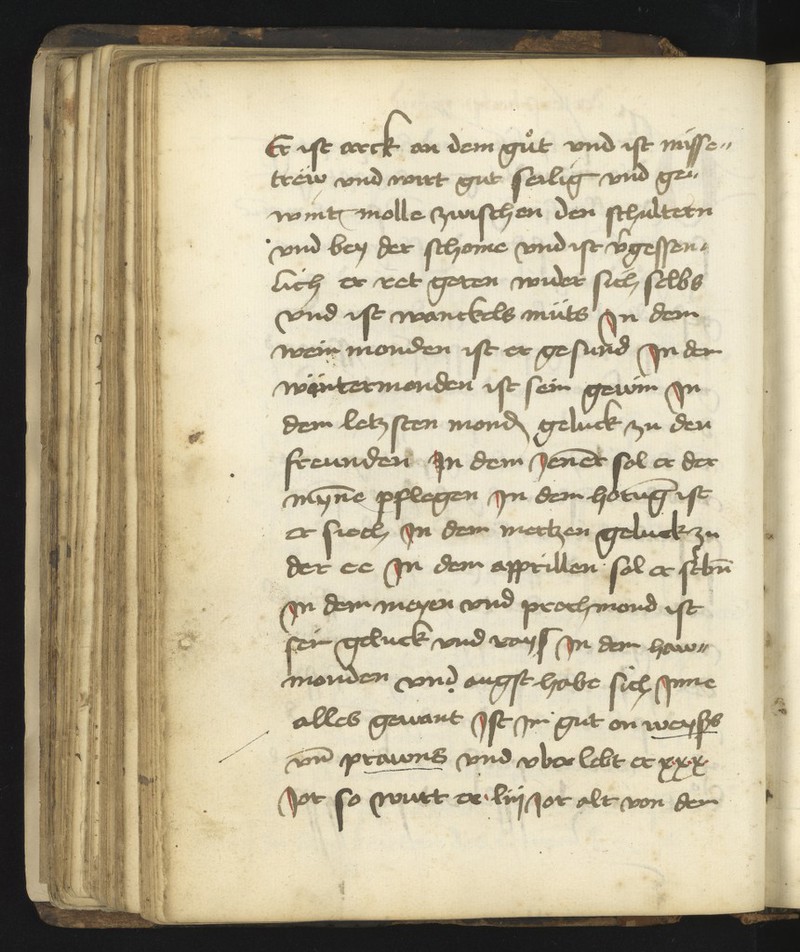 Er ist arck an dem gůt vnd ist misse„
trëw vnd wirt gut seilig vnd ge„
wint molle zwischen den schultern
vnd bey der schome vnd ist v̄gessen„
lich er ret geren wider sich selbs
vnd ist wanckels müts In dem
wein monden ist er gesund In dem
wintermonden ist sein gewin In
dem letzsten mond geluck zu den
freunden In dem Jener sol er der
mynē pflegen In dem hornūg ist
er siech In dem mertzen geluck zu
der ee In dem apprillen sol er st̄bn̄
In dem meyen vnd prochmond ist
sein geluck vnd rayß In dem haw„
monden vnd augst habe sich Inne
alles gewant Ist Im gut on weysßs
vn̄ prawns vnd vber lebt er xxx
Jor so wirt er liij Jor alt von dem